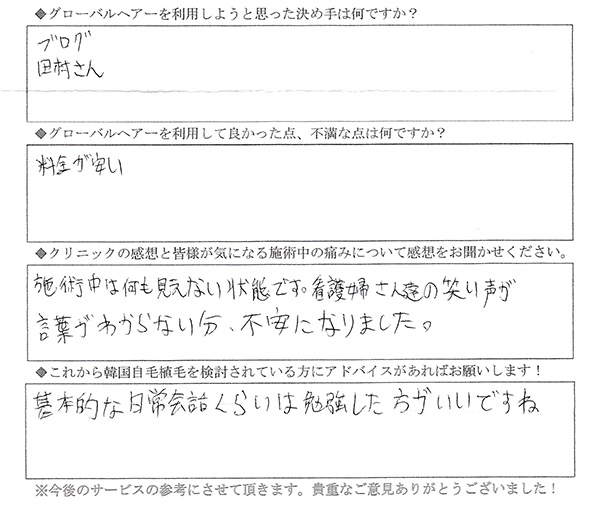 ◆グローバルヘアーを利用しようと思った決め手は何ですか？
ブログ
田村さん
◆グローバルヘアーを利用して良かった点、不満な点は何ですか？
料金が安い
◆クリニックの感想と皆様が気になる施術中の痛みについて感想をお聞かせください。
施術中は何も見えない状態です。看護婦さん達の笑い声が
言葉がわからない分、不安になりました。
◆これから韓国自毛植毛を検討されている方にアドバイスがあればお願いします！
基本的な日常会話くらいは勉強した方がいいですね
※今後のサービスの参考にさせて頂きます。貴重なご意見ありがとうございました！